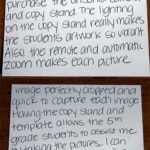 purchase the
and copy stand. The lighting
on the copy stand really makes
the students artwork so vibrant
Also the remote and automatic
zoom makes each picture
image perfectly cropped and
quick to capture each image
Having the copy stand and
template allows the 5th
grade students to assist me
in taking the pictures. I can